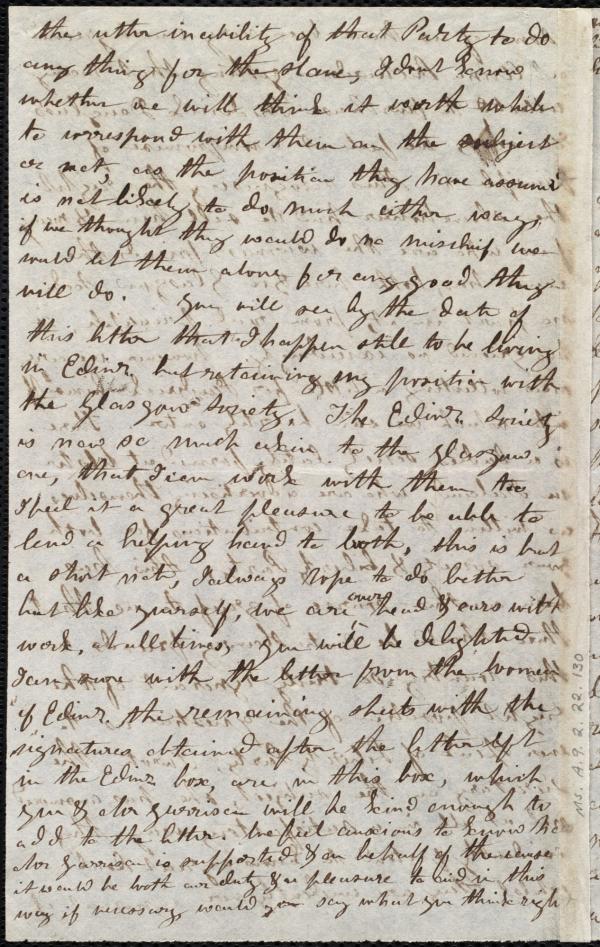 the utter inability of that Party to do
any thing for the slave, I dont know
whether we will think it worth while
to correspond with them on the subject
or not, as the position they have assumed
is not likely to do much either way,
if we thought they would do no mischief we
would let them alone for any good they
will do. You will see by the date of
this letter that I happen still to be living
in Edinr. but retaining my position with
the Glasgow Society. The Edinr. Society
is now so much akin to the Glasgow
one, that I can work with them too
I feel it a great pleasure to be able to
lend a helping hand to both, this is but
a short note, I always hope to do better
but like yourself, we are over head & ears with
work, at all times, you will be delighted
I am sure with the letter from the Women
of Edinr. the remaining sheets with the
signatures obtained after the letter left
in the Edinr box, are in this box, which
you & Mr Garrison will be kind enough to
add to the letter. We feel anxious to know how
Mr Garrison is supported & on behalf of the cause
it would be both our duty & a pleasure to aid in this
way if necessary would you say what you think right
Ms. A.9.2.22.130